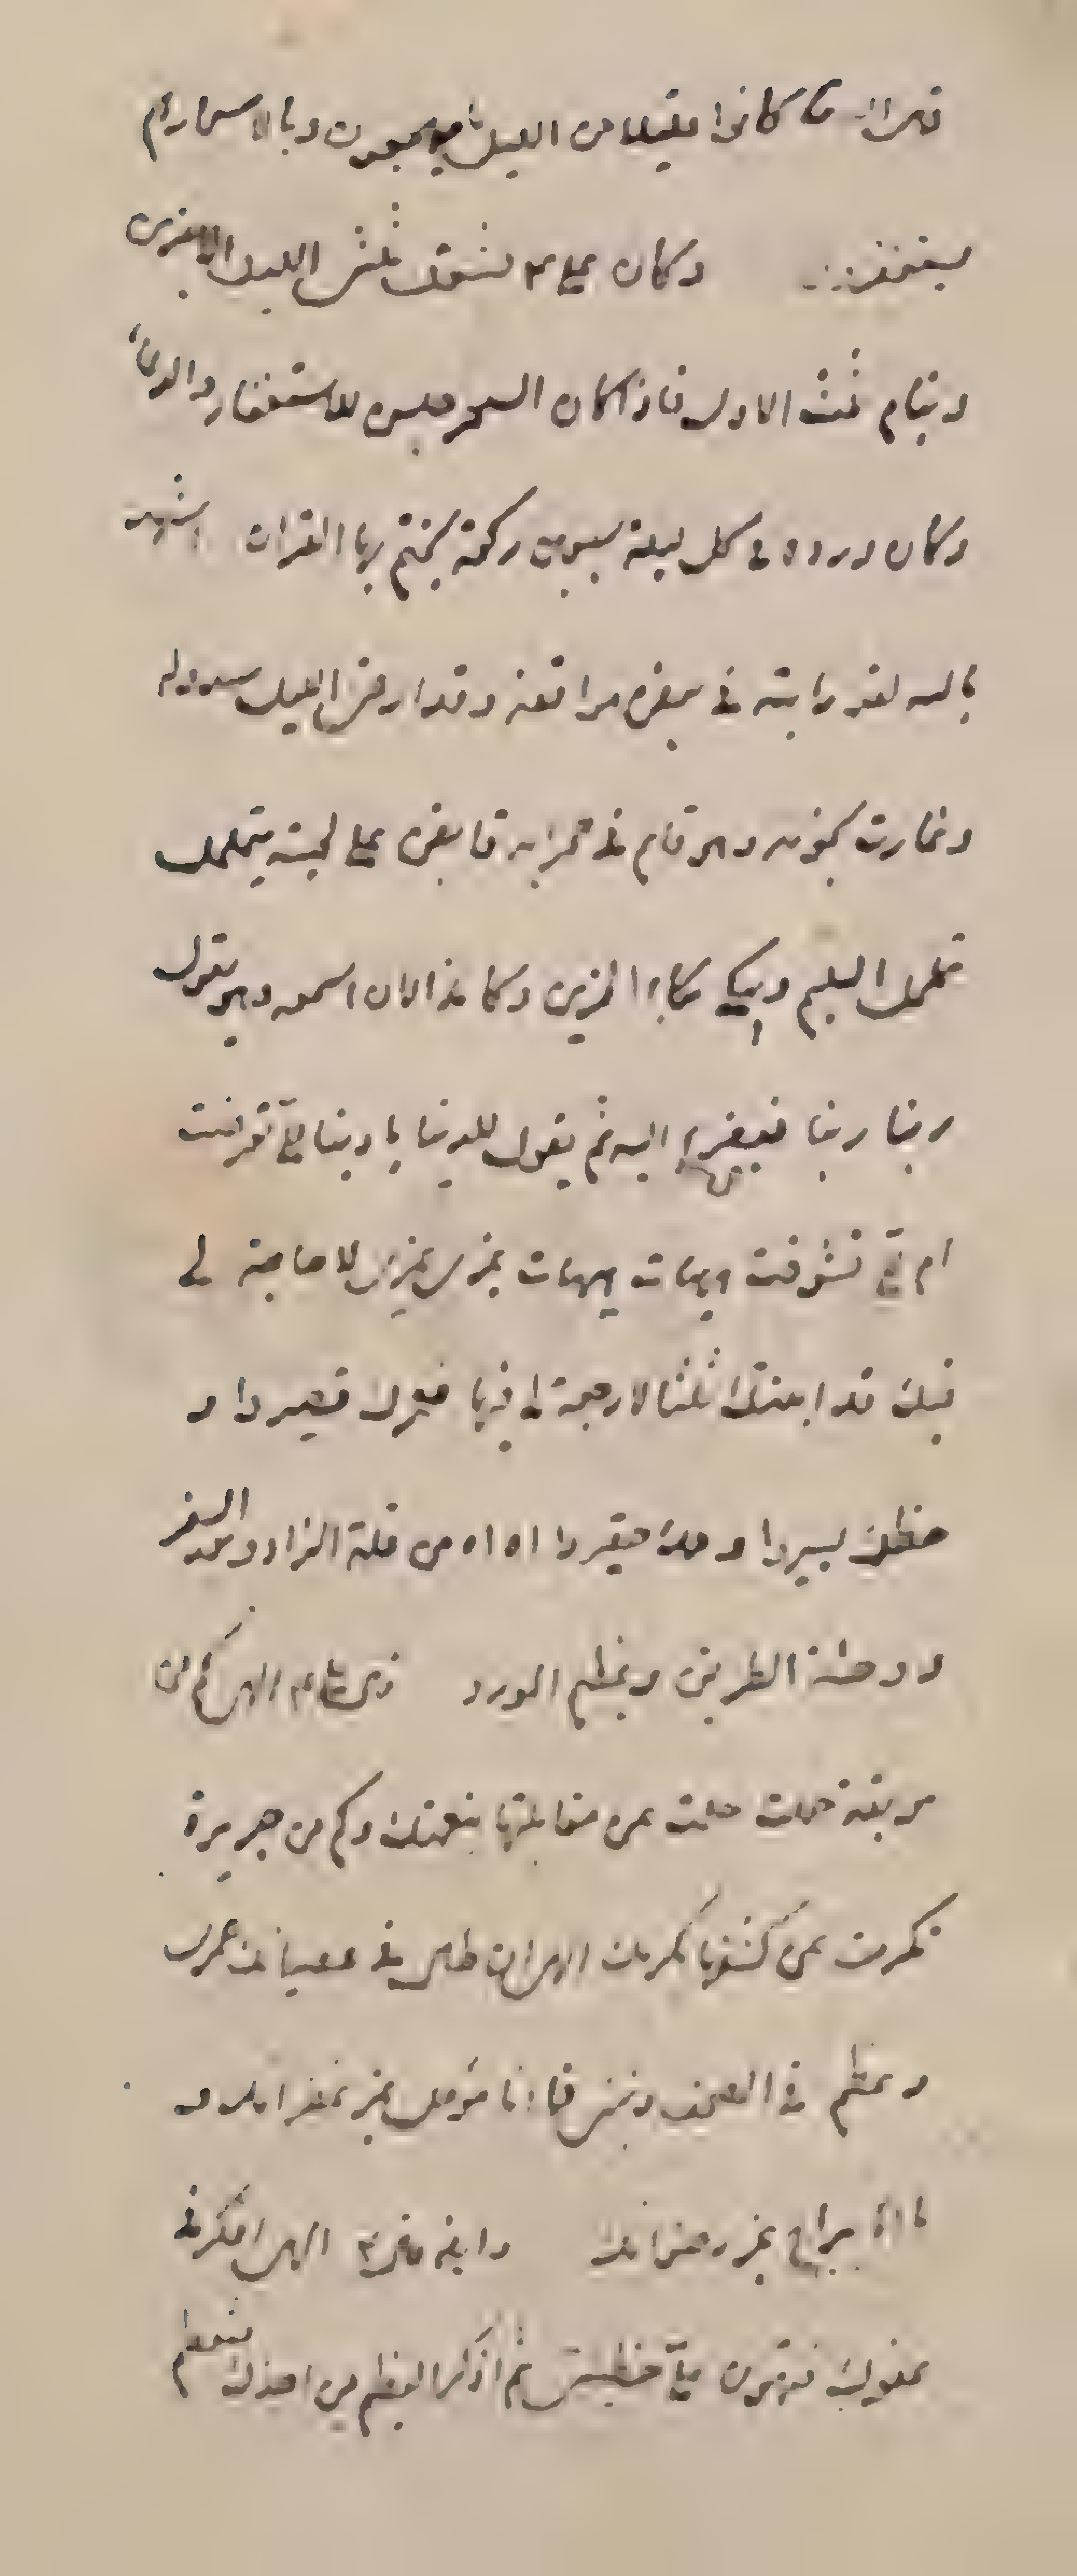 كانوا قليلا من الليل ما يهجعون وبالاسحار هم
يستغفرون وكان علي عم الليل الاخير
وينام ثلث الاول فاذا كان السحر جلس للاستغفار والدعاء
وكان ورده في كل ليلة سبعين ركعة يختم بها القران اشهد
بالله لقد رايته في بعض مواقفه وقد ارخى الليل سدوله
وغارت نجومه وهو قام في محرابه قابض على لحيته يتململ
تململ السليم ويبكي بكاء الحزين وكاني الان اسمعه وهو يقول
ربنا ربنا اليه ثم يقول للدنيا يا دنيا الي تعرضت
ام الي تشوقت هيهات هيهات غري غيري لا حاجة لي
فيك قد ابنتك ثلثا لا رجعة لي فيها فعمرك قصير و
خطرك يسير و حقير اه اه من قلة الزاد وبعد السفر
و وحشة الطريق وعظم المورد الهي كم من
موبقة حملت حلمت عن مقابلتها بنعمتك وكم من جريرة
تكرمت عن كشفها بكرمك الهي ان طال في عصيانك عمري
وعظم في الصحف ذنبي فما انا مؤمل غير غفرانك و
لا انا براج غير رضوانك وايضا الهي افكر في
عفوك فتهون علي خطيئتي ثم اذكر العظيم من اخذك فتعظم